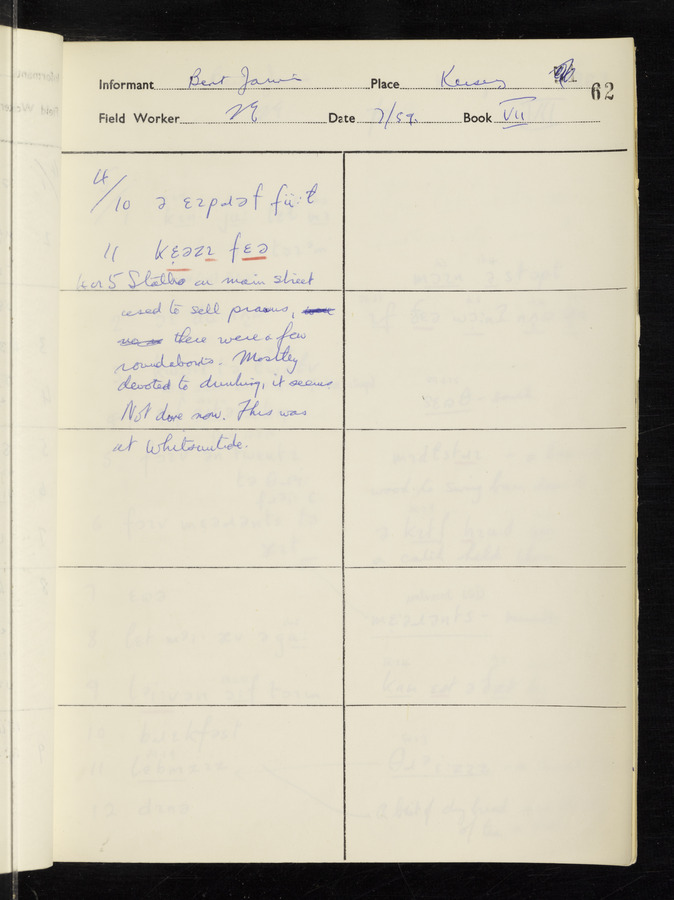 Informant Bert Jarvis Place Kersey 62
Field Worker Date 7/59. Book VII
4/10 ə
11 fɛə
4 or 5 Stalls on main street
used to sell prawns,
there were a few
roundabouts. Mostly
devoted to drinking, it seems.
Not done now. This was
at Whitsuntide.